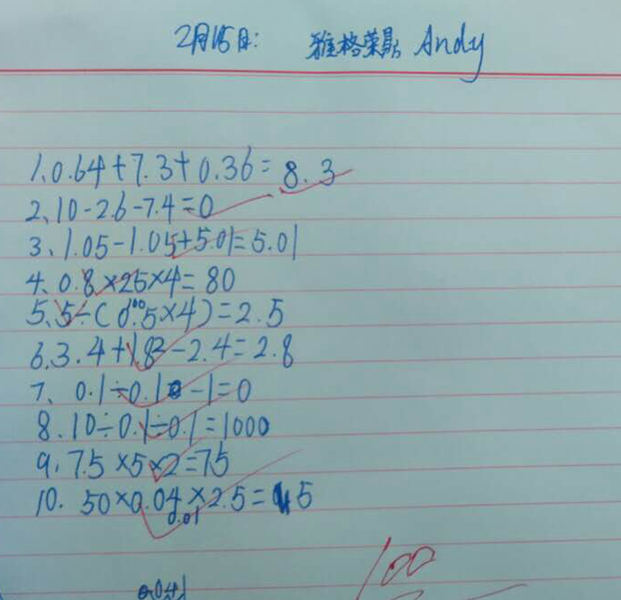 2月15日: 雅格荣鼎 Andy
1、0.64+7.3+0.36=8.3
2、10-2.6-7.4=0
3、1.05-1.05+5.01=5.01
4、0.8×25×4=80
5、5÷(0.5×4)=2.5
6、3.4+1.8-2.4=2.8
7、0.1÷0.1-1=0
8、10÷0.1÷0.1=1000
9、7.5×5×2=75
10、50×0.04×2.5=5
0.01
100